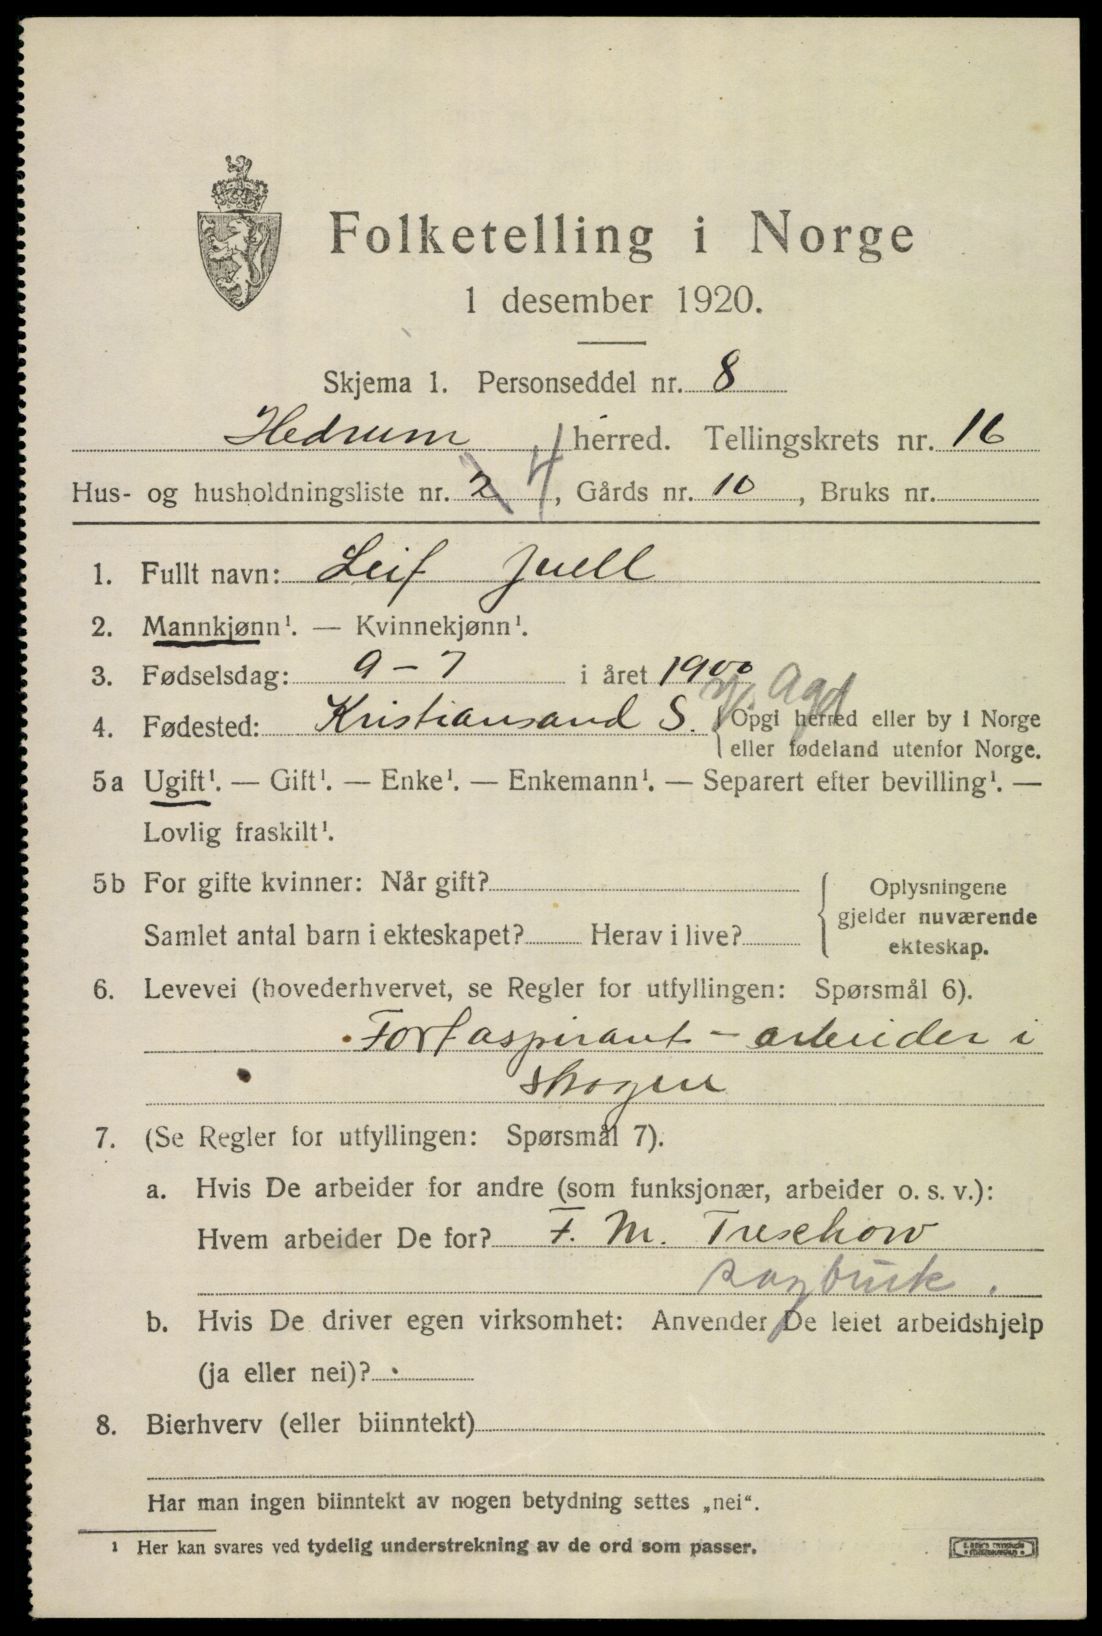 Folketelling i Norge
1 desember 1920.
Skjema 1. Personseddel nr. 8
Hedrum herred. Tellingskrets nr. 16
Hus- og husholdningsliste nr. 2 4, Gårds nr. 10, Bruks nr.
1. Fullt navn: Leif Juell
2. Mannkjønn¹. — Kvinnekjønn¹.
3. Fødselsdag: 9 - 7 i året 1900
V. Agd
4. Fødested: Kristiansand S. Opgi herred eller by i Norge
eller fødeland utenfor Norge.
5a Ugift¹. — Gift¹. — Enke¹. — Enkemann¹. — Separert efter bevilling¹. —
Lovlig fraskilt¹.
5b For gifte kvinner: Når gift?
Samlet antal barn i ekteskapet? Herav i live?
Oplysningene
gjelder nuværende
ekteskap.
6. Levevei (hovederhvervet, se Regler for utfyllingen: Spørsmål 6).
Forstaspirant - arbeider i
skogen
7. (Se Regler for utfyllingen: Spørsmål 7).
a. Hvis De arbeider for andre (som funksjonær, arbeider o. s. v.):
Hvem arbeider De for? F. M. Treschow
sagbruk.
b. Hvis De driver egen virksomhet: Anvender De leiet arbeidshjelp
(ja eller nei)?
8. Bierhverv (eller biinntekt)
Har man ingen biinntekt av nogen betydning settes „nei“.
¹ Her kan svares ved tydelig understrekning av de ord som passer.